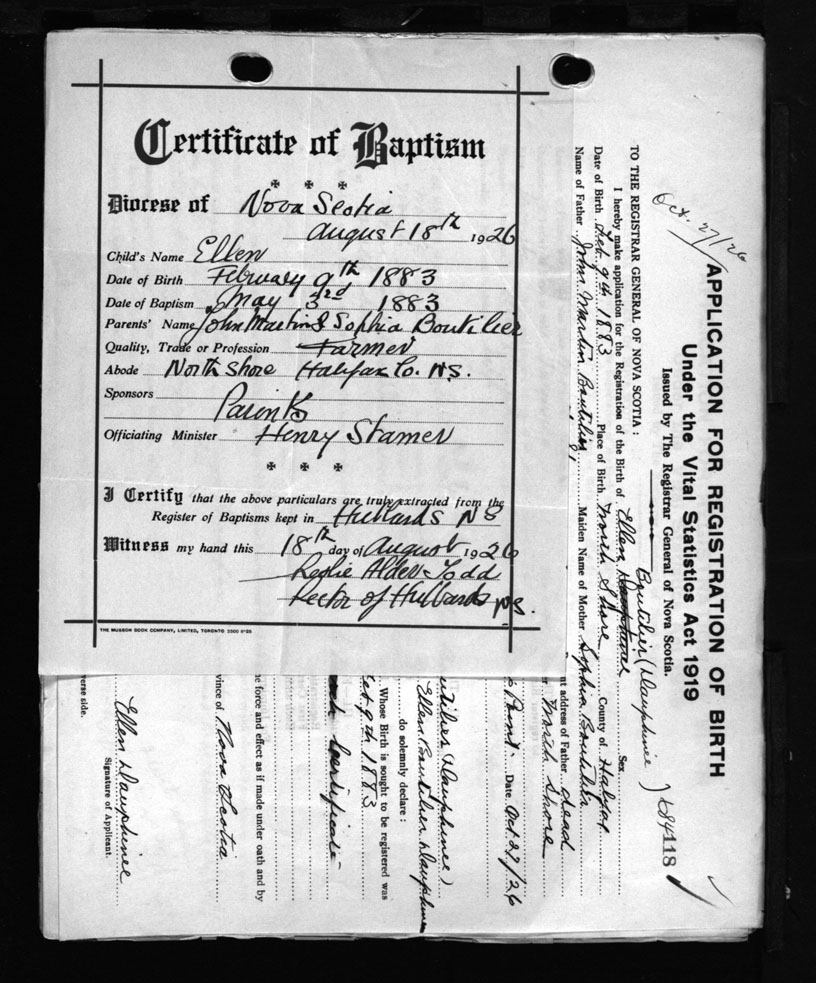 Certificate of Baptism
Diocese of Nova Scotia
August 18th 1926
Child's Name Ellen
Date of Birth February 9th, 1883
Date of Baptism May 3rd 1883
Parents' Name John Martin & Sophia Boutilier
Quality, Trade or Profession Farmer
Abode North Shore Halifax Co. N.S.
Sponsors
Parents
Officiating Minister Henry Stamer
I Certify that the above particulars are truly extracted from the
Register of Baptisms kept in Hubbards NS
Witness my hand this 18th day of August 1926
Leslie Alder Todd
Rector of Hubbards NS.
THE MUSSON BOOK COMPANY, LIMITED, TORONTO
Oct. 27/26
APPLICATION FOR REGISTRATION OF BIRTH
Under the Vital Statistics Act 1919
Issued by The Registrar General of Nova Scotia.
84118
TO THE REGISTRAR GENERAL OF NOVA SCOTIA:
Boutilier (Dauphinee)
I hereby make application for the Registration of the Birth of Ellen Dauphinee Sex
Date of Birth Feb. 9th 1883 Place of Birth North Shore County of Halifax
Name of Father John Martin Boutilier Maiden Name of Mother Sophia Boutilier
nt address of Father dead
er North Shore
Date Oct 27/26
utilier (Dauphinee)
Ellen Boutilier Dauphinee
do solemnly declare:
Whose Birth is sought to be registered was
9th 1883
Certificate
he force and effect as if made under oath and by
vince of Nova Scotia
Ellen Dauphinee
Signature of Applicant.
erse side.